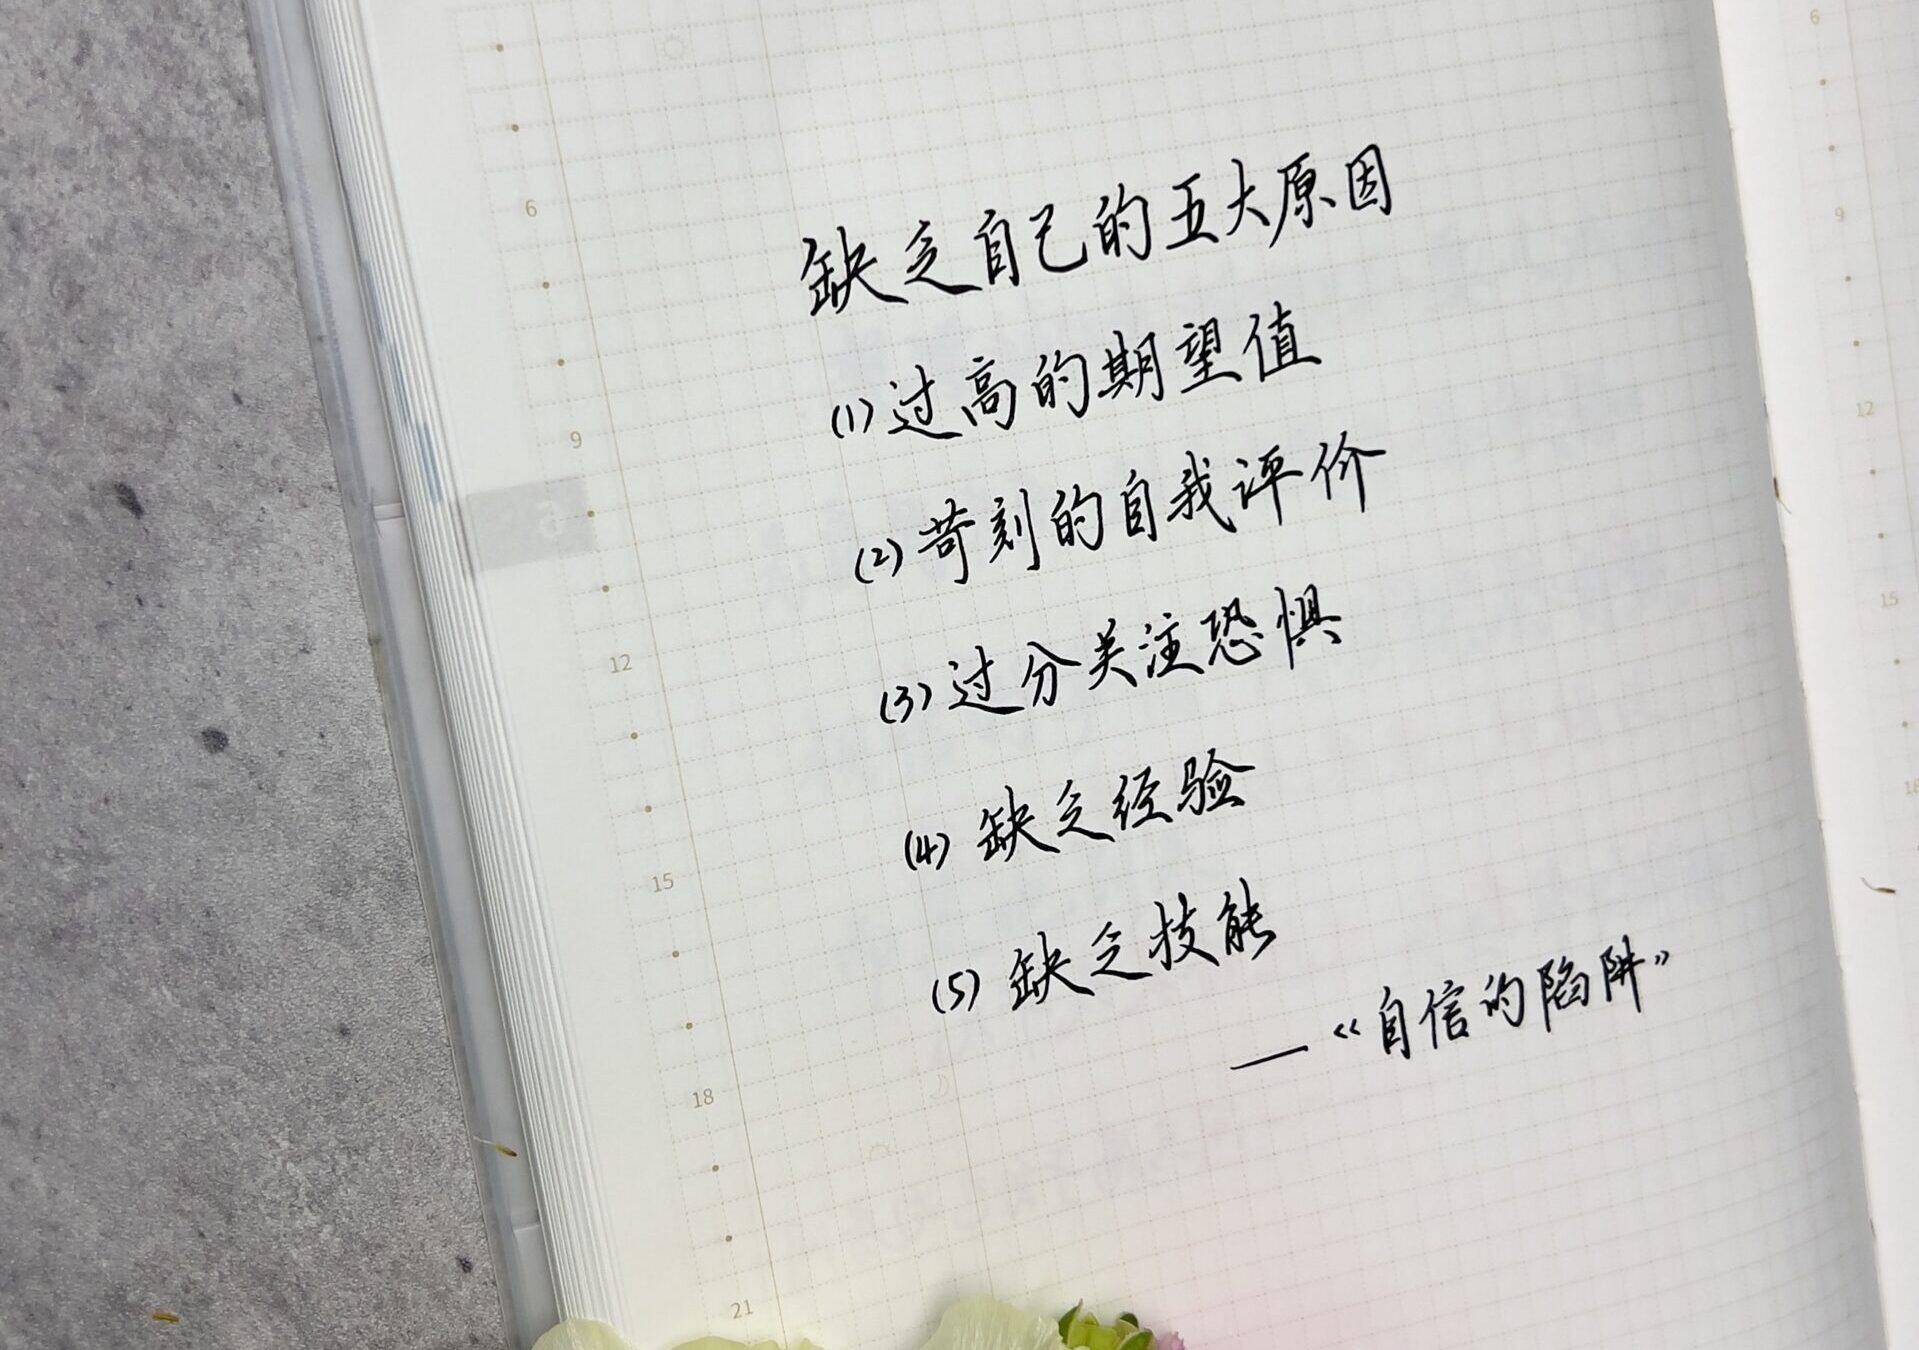 缺乏自己的五大原因
(1)过高的期望值
(2)苛刻的自我评价
(3)过分关注恐惧
(4)缺乏经验
(5)缺乏技能
—《自信的陷阱》
6
9
12
15
18
21
6
9
12
15
18